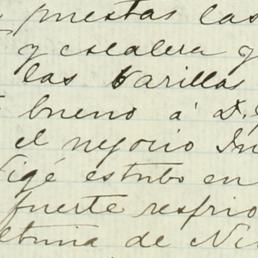 puestas las
y escalera y
las varillas
bueno á D.
el nejocio
Vigé estubo en
fuerte resfrio
de